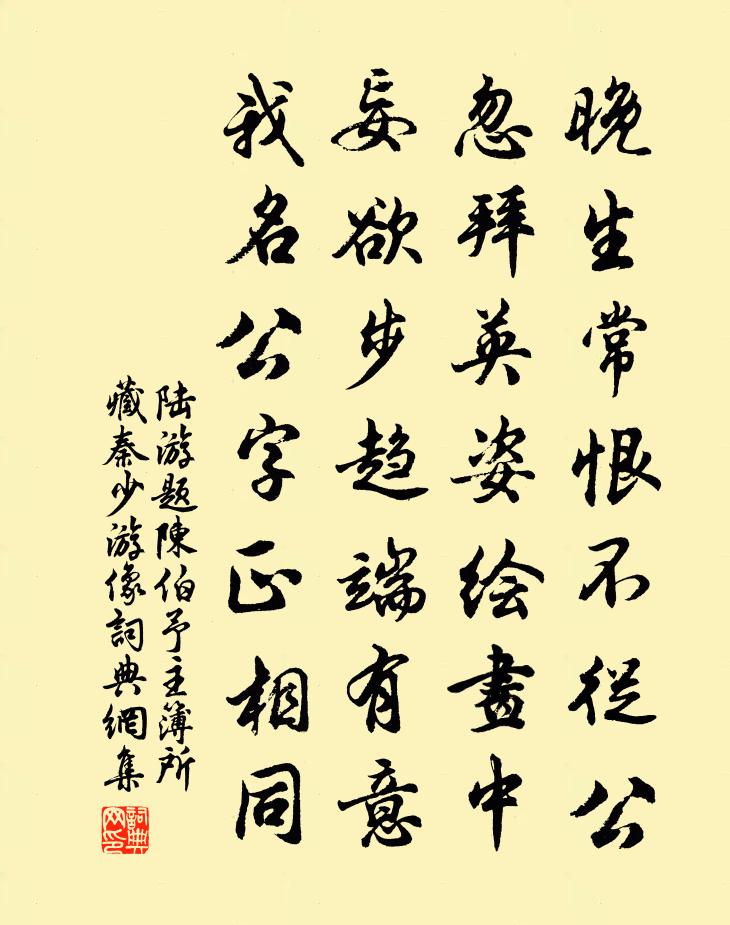 晚生常恨不從公
忽拜英姿绘畫中
妄欲步趋端有意
我名公字正相同
陆游题陳伯予主簿所
藏秦少游像詞典網集
詞典
网印